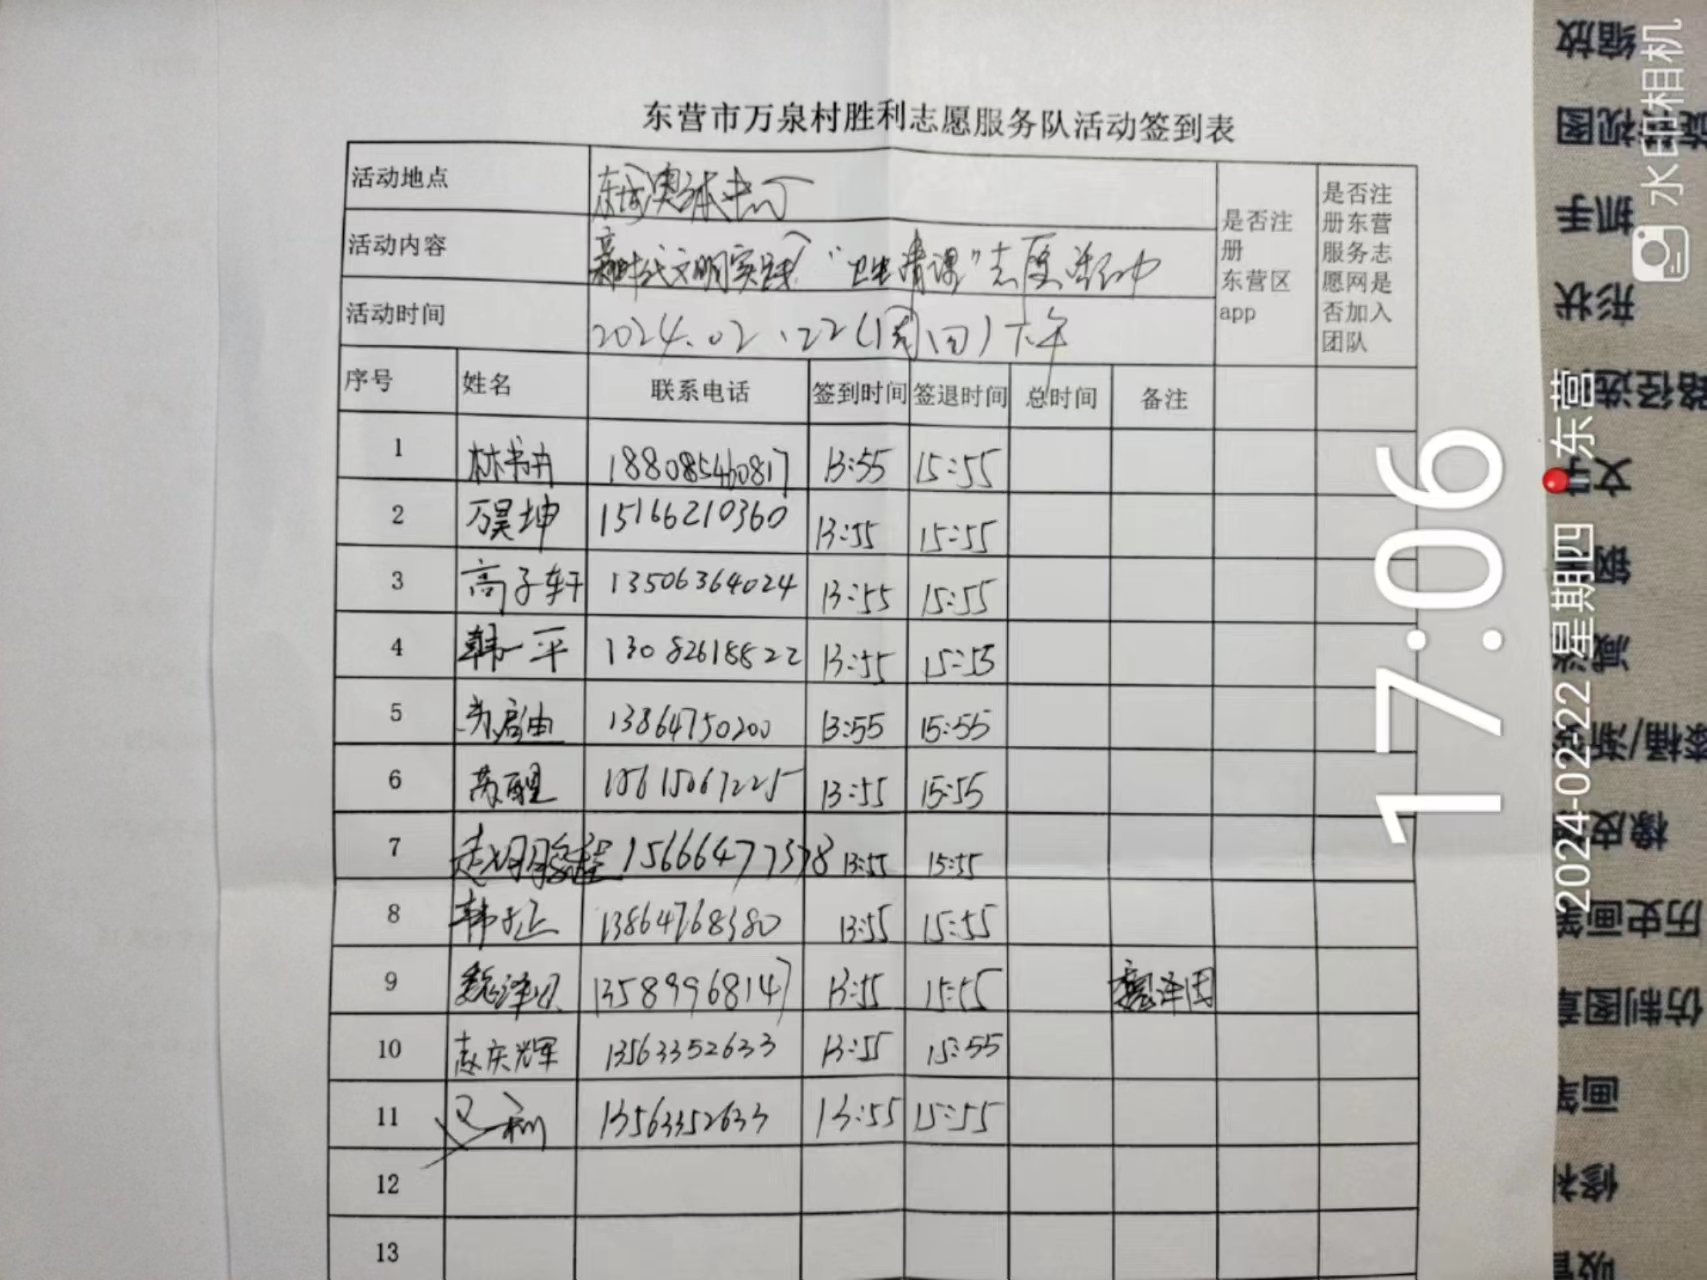 东营市万泉村胜利志愿服务队活动签到表
活动地点 东城奥体
是否注册东营区app
是否注册东营服务志愿网是否加入团队
活动内容 新时代文明实践 “卫生清理”志愿活动
活动时间 2024.02.22(周四)下午
序号 姓名 联系电话 签到时间 签退时间 总时间 备注
1 林书冉 188085460817 13:55 15:55
2 万昊坤 15166210360 13:55 15:55
3 高子轩 13506364024 13:55 15:55
4 韩一平 13082618822 13:55 15:55
5 13864750200 13:55 15:55
6 苏醒 18615067225 13:55 15:55
7 15666477378 13:55 15:55
8 韩 13864768380 13:55 15:55
9 魏泽 13589968147 13:55 15:55 魏泽
10 赵庆辉 13563352633 13:55 15:55
11 13563352633 13:55 15:55
12
13
17:06
2024-02-22 星期四 东营
水印相机
缩放
旋转视图
抓手
形状
路径选
文字
钢
减淡
漆桶/渐
橡皮
历史画笔
仿制图章
画笔
修补
吸管